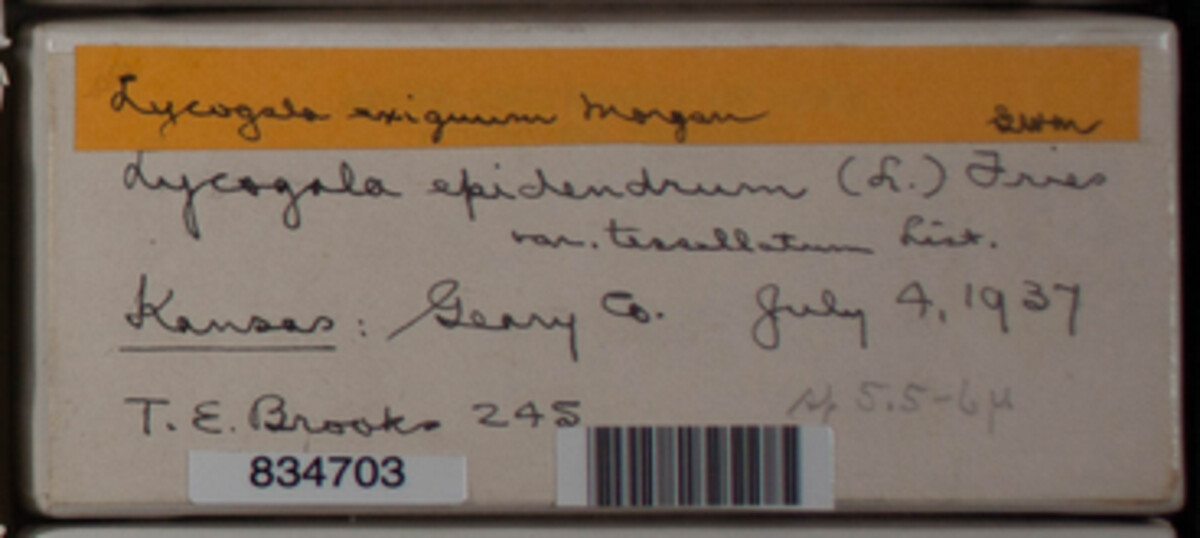 Lycogala exiguum Morgan GWM
Lycogala epidendrum (L.) Fries
var. tessellatum List.
Kansas: Geary Co. July 4, 1937
T. E. Brooks 245
5.5-6µ
834703